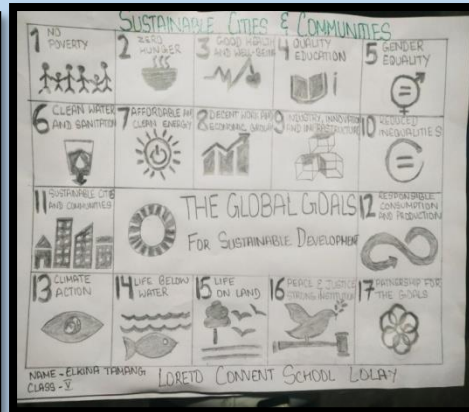 SUSTAINABLE CITIES & COMMUNITIES
1 NO
POVERTY
2 ZERO
HUNGER
3 GOOD HEALTH
AND WELL-BEING
4 QUALITY
EDUCATION
5 GENDER
EQUALITY
6 CLEAN WATER
AND SANITATION
7 AFFORDABLE AND
CLEAN ENERGY
8 DECENT WORK AND
ECONOMIC GROWTH
9 INDUSTRY, INNOVATION
AND INFRASTRUCTURE
10 REDUCED
INEQUALITIES
11 SUSTAINABLE CITIES
AND COMMUNITIES
THE GLOBAL GOALS
FOR SUSTAINABLE DEVELOPMENT
12 RESPONSIBLE
CONSUMPTION
AND PRODUCTION
13 CLIMATE
ACTION
14 LIFE BELOW
WATER
15 LIFE
ON LAND
16 PEACE & JUSTICE
STRONG
17 PARTNERSHIP FOR
THE GOALS
NAME - ELKINA TAMANG
CLASS - V
LORETO CONVENT SCHOOL LOLAY